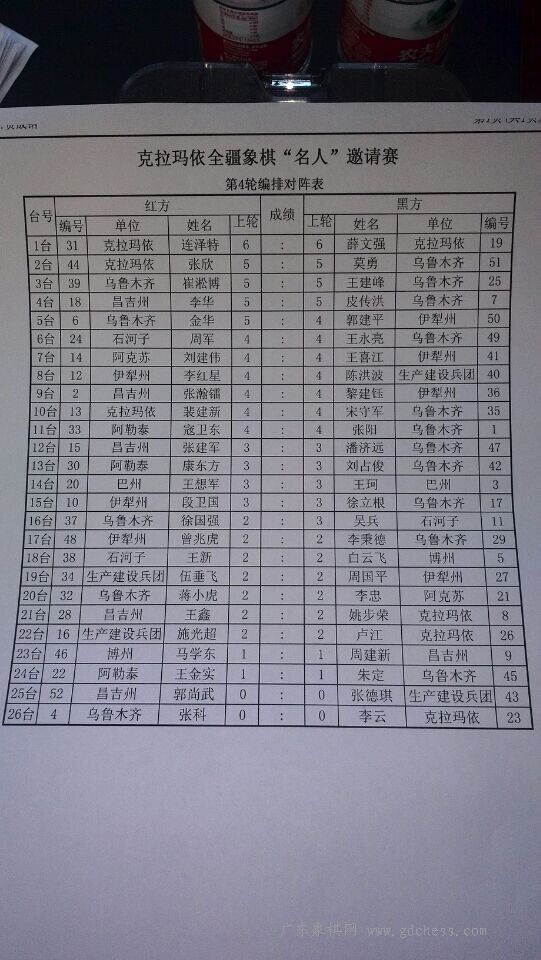 克拉玛依全疆象棋“名人”邀请赛
第4轮编排对阵表
台号 红方 成绩 黑方
编号 单位 姓名 上轮 上轮 姓名 单位 编号
1台 31 克拉玛依 连泽特 6 : 6 薛文强 克拉玛依 19
2台 44 克拉玛依 张欣 5 : 5 莫勇 乌鲁木齐 51
3台 39 乌鲁木齐 崔淞博 5 : 5 王建峰 乌鲁木齐 25
4台 18 昌吉州 李华 5 : 5 皮传洪 乌鲁木齐 7
5台 6 乌鲁木齐 金华 5 : 4 郭建平 伊犁州 50
6台 24 石河子 周军 4 : 4 王永亮 乌鲁木齐 49
7台 14 阿克苏 刘建伟 4 : 4 王喜江 伊犁州 41
8台 12 伊犁州 李红星 4 : 4 陈洪波 生产建设兵团 40
9台 2 昌吉州 张瀚镭 4 : 4 黎建钰 伊犁州 36
10台 13 克拉玛依 裴建新 4 : 4 宋守军 乌鲁木齐 35
11台 33 阿勒泰 寇卫东 4 : 4 张阳 乌鲁木齐 1
12台 15 昌吉州 张建军 3 : 3 潘济远 乌鲁木齐 47
13台 30 阿勒泰 康东方 3 : 3 刘占俊 乌鲁木齐 42
14台 20 巴州 王想军 3 : 3 王珂 巴州 3
15台 10 伊犁州 段卫国 3 : 3 徐立根 乌鲁木齐 17
16台 37 乌鲁木齐 徐国强 2 : 3 吴兵 石河子 11
17台 48 伊犁州 曾兆虎 2 : 2 李秉德 乌鲁木齐 29
18台 38 石河子 王新 2 : 2 白云飞 博州 5
19台 34 生产建设兵团 伍垂飞 2 : 2 周国平 伊犁州 27
20台 32 乌鲁木齐 蒋小虎 2 : 2 李忠 阿克苏 21
21台 28 昌吉州 王鑫 2 : 2 姚步荣 克拉玛依 8
22台 16 生产建设兵团 施光超 2 : 2 卢江 克拉玛依 26
23台 46 博州 马学东 1 : 1 周建新 昌吉州 9
24台 22 阿勒泰 王金实 1 : 1 朱定 乌鲁木齐 45
25台 52 昌吉州 郭尚武 0 : 0 张德琪 生产建设兵团 43
26台 4 乌鲁木齐 张科 0 : 0 李云 克拉玛依 23
广东象棋网 www.gdchess.com